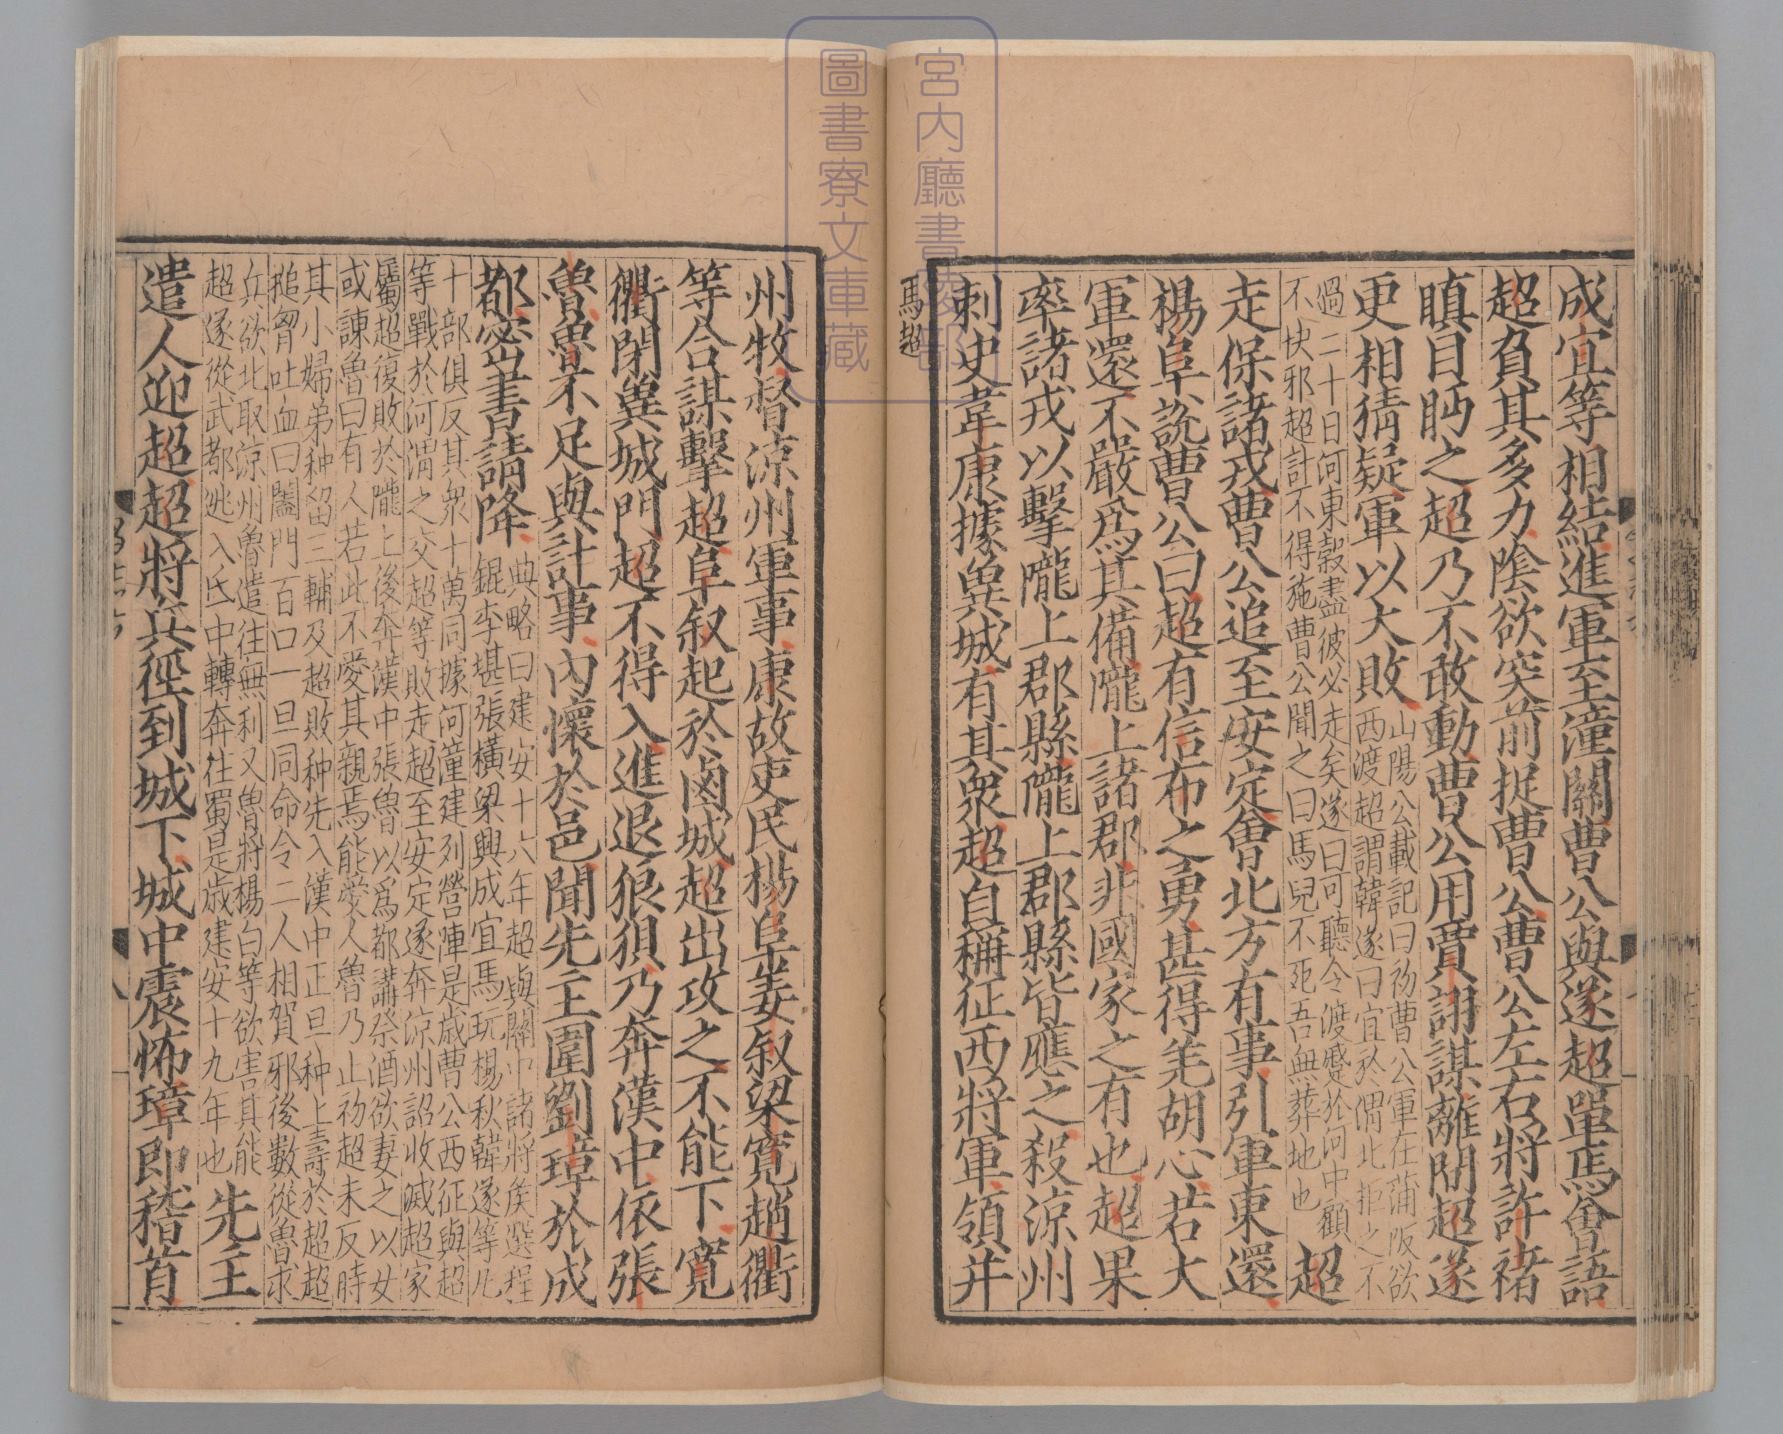 成宜等相結進軍至潼關曹公與遂超單馬會語
超負其多力陰欲突前捉曹公曹公左右將許褚
瞋目眄之超乃不敢動曹公用賈詡謀離間超遂
更相猜疑軍以大敗
山陽公載記曰初曹公軍在蒲阪欲
西渡超謂韓遂曰宜於渭北拒之不
過二十日河東穀盡彼必走矣遂曰可聽令渡蹙於河中顧
不快邪超計不得施曹公聞之曰馬兒不死吾無葬地也
超
走保諸戎曹公追至安定會北方有事引軍東還
楊阜說曹公曰超有信布之勇甚得羌胡心若大
軍還不嚴爲其備隴上諸郡非國家之有也超果
率諸戎以擊隴上郡縣隴上郡縣皆應之殺涼州
刺史韋康據兾城有其衆超自稱征西將軍領并
馬超
州牧督涼州軍事康故吏民楊阜姜叙梁寬趙衢
等合謀擊超阜叙起於鹵城超出攻之不能下寬
衢閉兾城門超不得入進退狼狽乃奔漢中依張
魯魯不足與計事內懷於邑聞先主圍劉璋於成
都密書請降
典略曰建安十六年超與關中諸將侯選程
銀李堪張橫梁興成宜馬玩楊秋韓遂等凡
十部俱反其衆十萬同據河潼建列營陣是歲曹公西征與超
等戰於河渭之交超等敗走超至安定遂奔涼州詔收滅超家
屬超復敗於隴上後奔漢中張魯以爲都講祭酒欲妻之以女
或諫魯曰有人若此不愛其親焉能愛人魯乃止初超未反時
其小婦弟种留三輔及超敗种先入漢中正旦种上壽於超超
搥胷吐血曰闔門百口一旦同命今二人相賀邪後數從魯求
兵欲北取涼州魯遣往無利又魯將楊白等欲害其能
超遂從武都逃入氐中轉奔往蜀是歲建安十九年也
先主
遣人迎超超將兵徑到城下城中震怖璋即稽首
宮内廳書陵部
圖書寮文庫藏